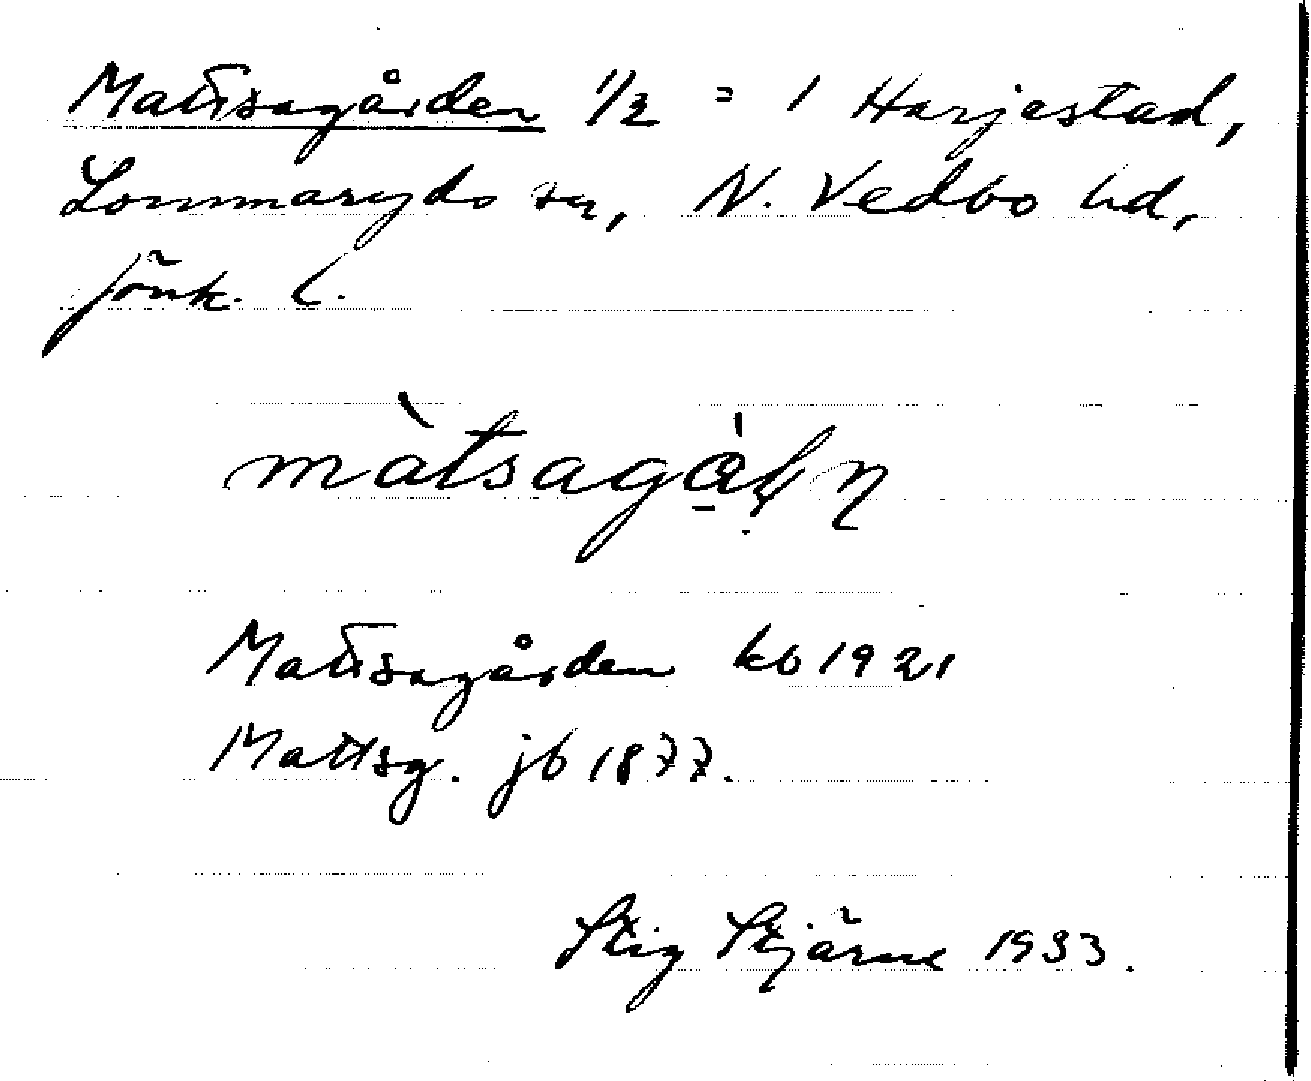 Mattsagården 1/2 = 1 Harjestad,
Lommaryds sn, N. Vedbo hd,
Jönk. l.
Mattsagården kb 1921
Mattsg. jb 1877.
Stig Stjärne 1933.